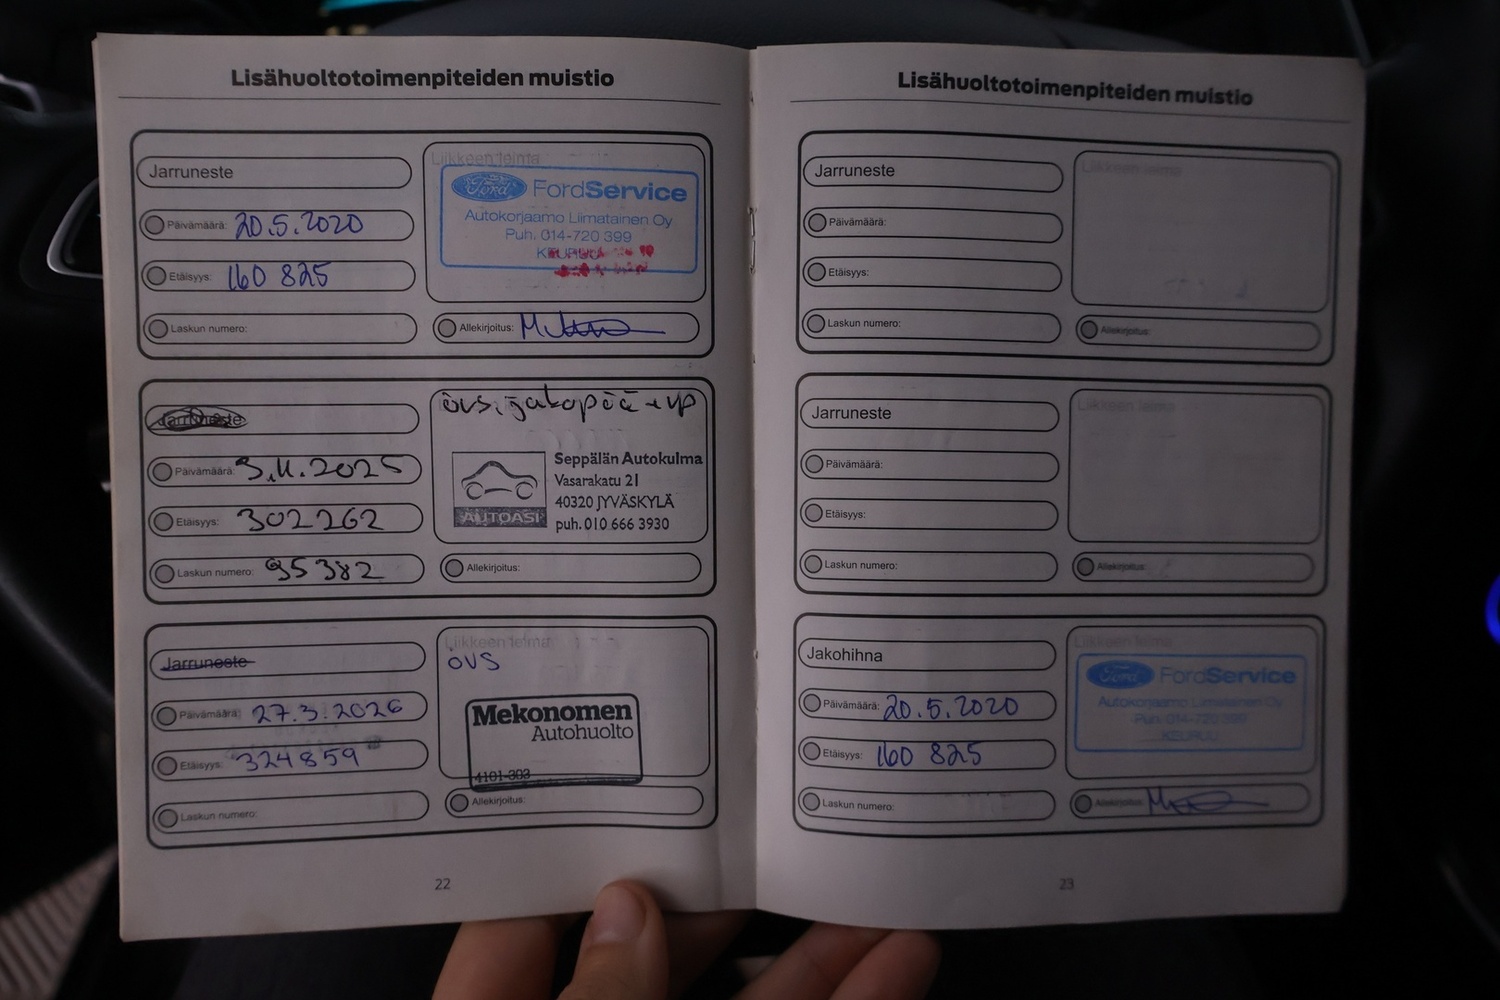 Lisähuoltotoimenpiteiden muistio
Jarruneste
Päivämäärä: 20.5.2020
Etäisyys: 160 825
Laskun numero:
Liikkeen leima
Ford FordService
Autokorjaamo Liimatainen Oy
Puh. 014-720 399
KEURUU
Allekirjoitus:
Jarruneste
Päivämäärä: 3.11.2025
Etäisyys: 302262
Laskun numero: 95382
övs, jakopää + vp
AUTOASI
Seppälän Autokulma
Vasarakatu 21
40320 JYVÄSKYLÄ
puh. 010 666 3930
Allekirjoitus:
Jarruneste
Päivämäärä: 27.3.2026
Etäisyys: 324859
Laskun numero:
Liikkeen leima
ÖVS
Mekonomen
Autohuolto
4101-303
Allekirjoitus:
22
Lisähuoltotoimenpiteiden muistio
Jarruneste
Päivämäärä:
Etäisyys:
Laskun numero:
Liikkeen leima
Allekirjoitus:
Jarruneste
Päivämäärä:
Etäisyys:
Laskun numero:
Liikkeen leima
Allekirjoitus:
Jakohihna
Päivämäärä: 20.5.2020
Etäisyys: 160 825
Laskun numero:
Liikkeen leima
Ford FordService
Autokorjaamo Liimatainen Oy
Puh. 014-720 399
KEURUU
Allekirjoitus:
23